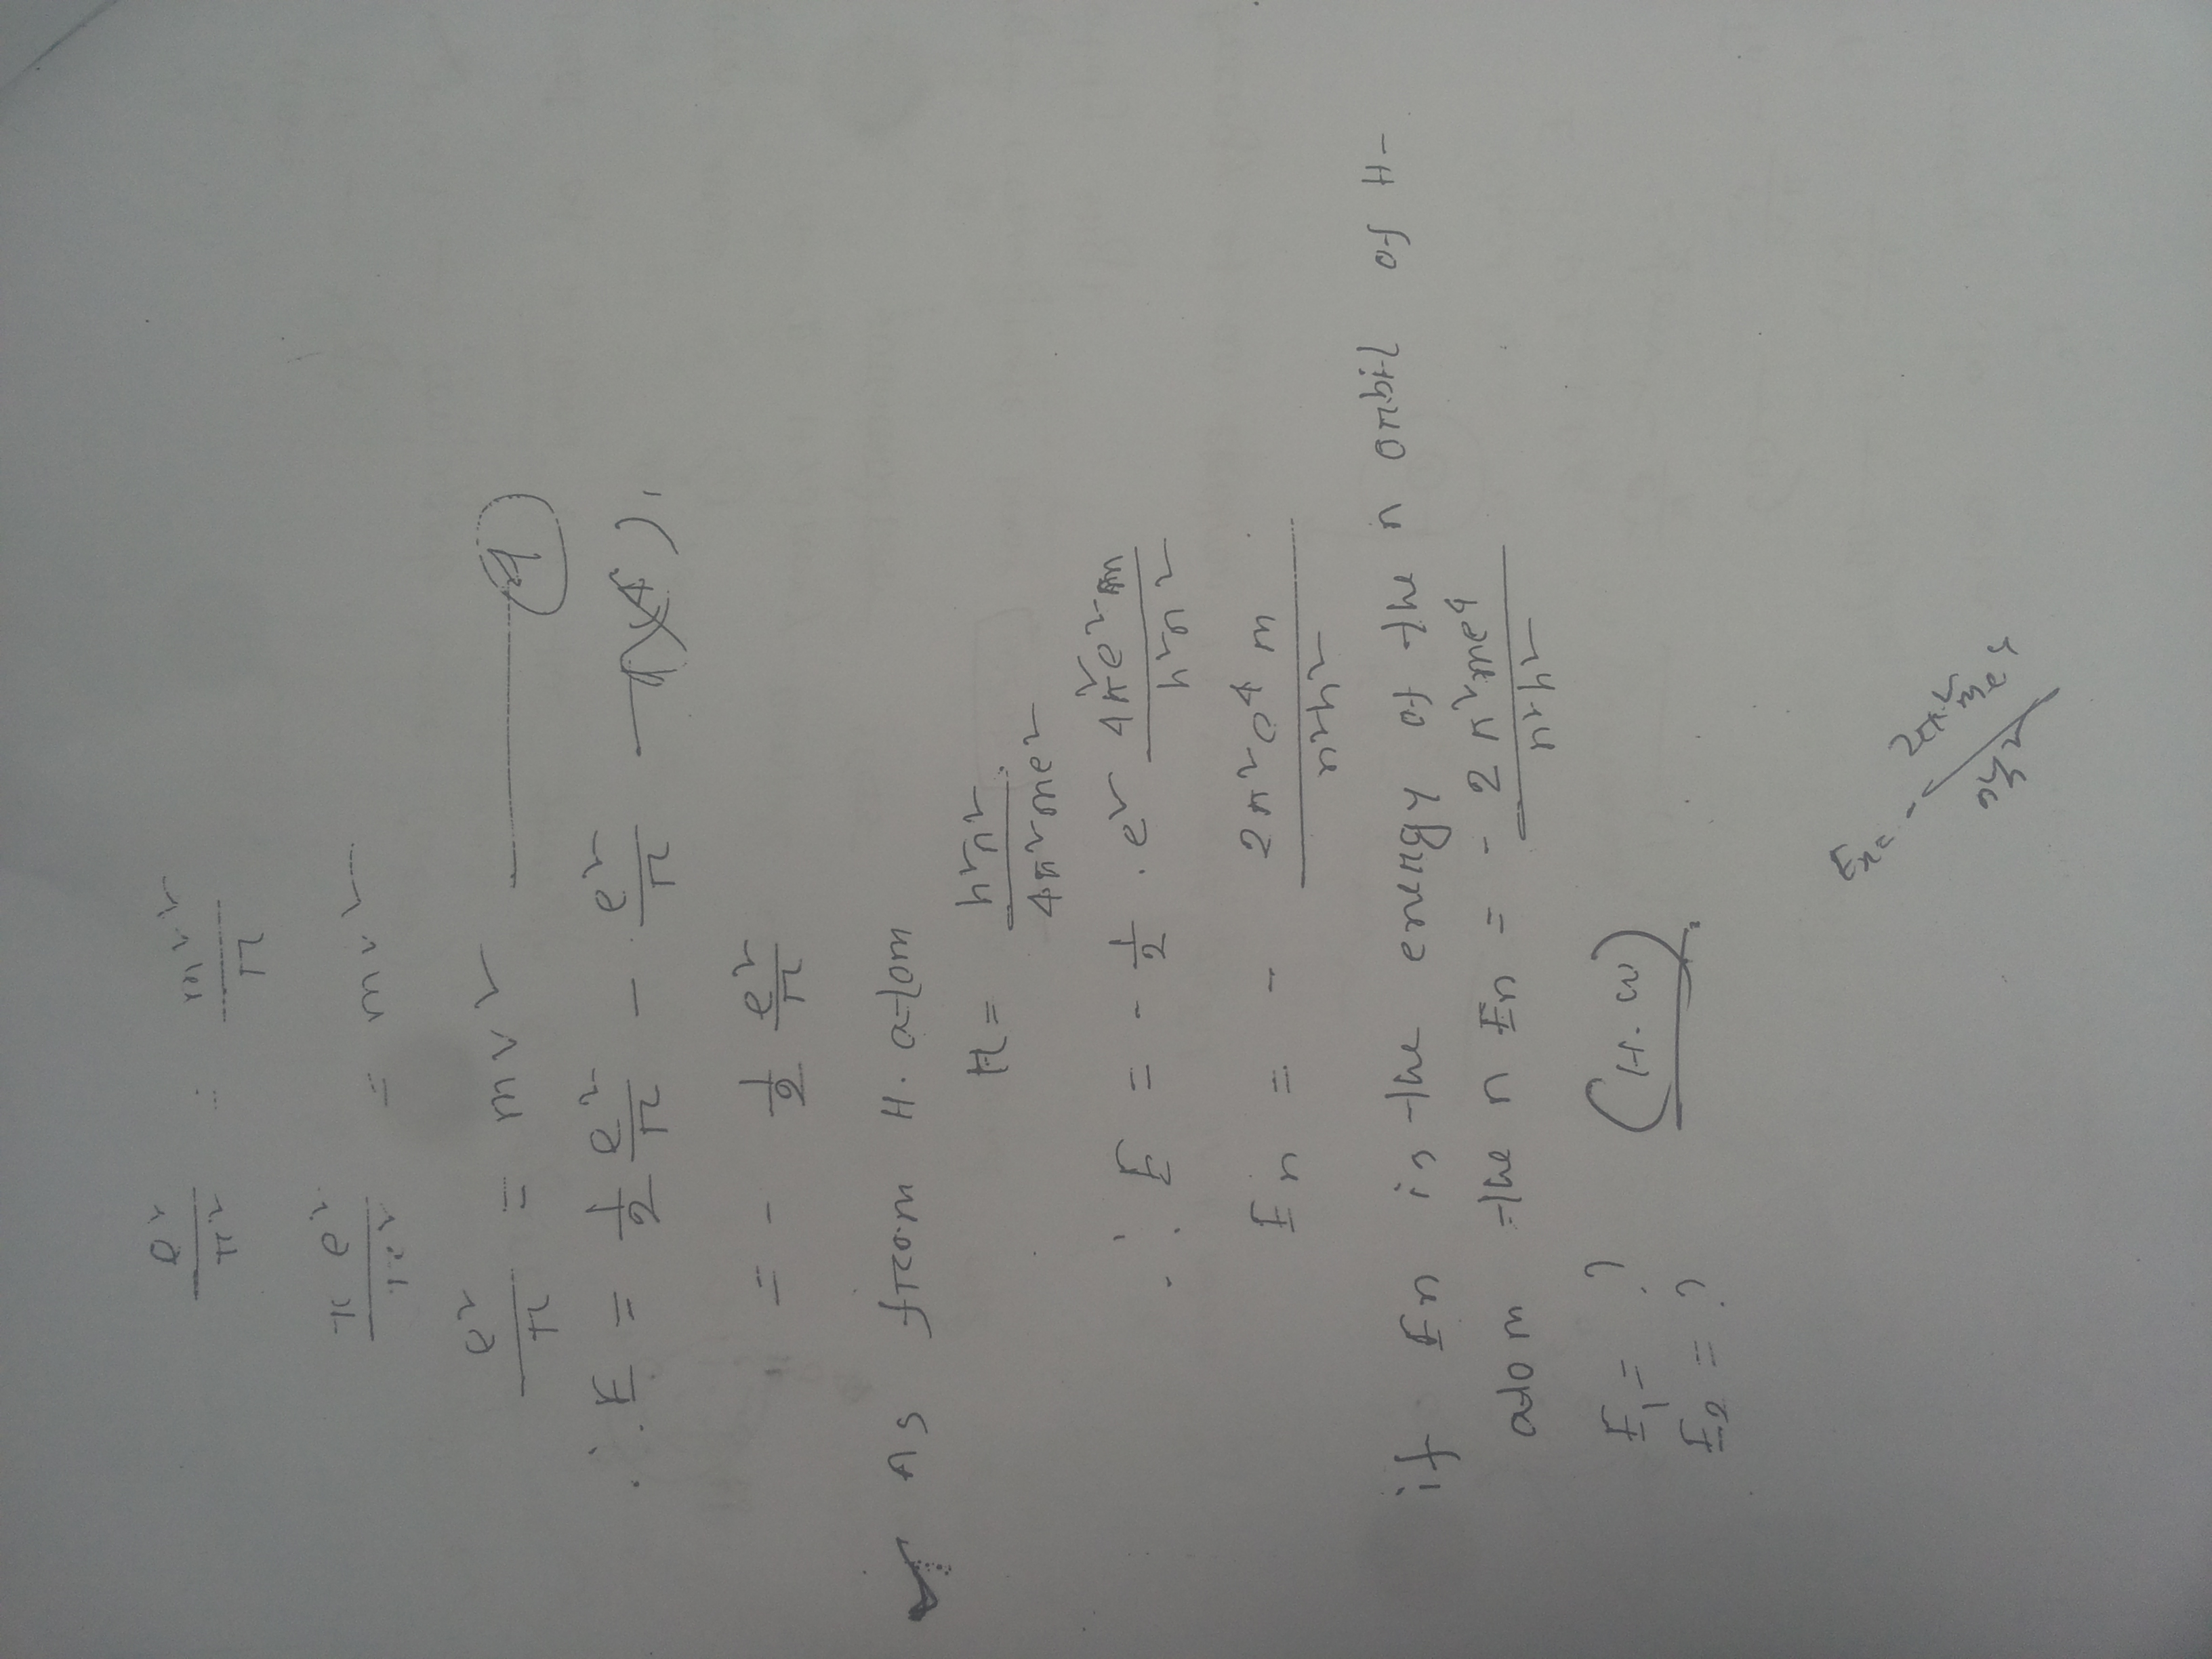 e² / r² = mv² / r
r e² / r² = mv²
e² / r = mv² —— 4
∴ E = 1/2 e²/r - e²/r
= - 1/2 e²/r
As from H. atom
r = h²n² / 4π²me²
∴ E = - 1/2 . e² 4π²e²m / h²n²
En = - 2π²e4 m / n²h²
if En is the energy of the n orbit of H-
atom the n En = - 2π²me4 / n²h²
E1 = ? (H.W)
E2 = ?
En = - 2π²me4 / n²h²